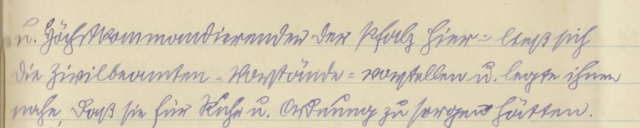 u. Höchstkommandierender der Pfalz hier = ließ sich
die Zivilbeamten = Vorstände = vorstellen u. legte ihnen
nahe, daß sie für Ruhe u. Ordnung zu sorgen hätten.